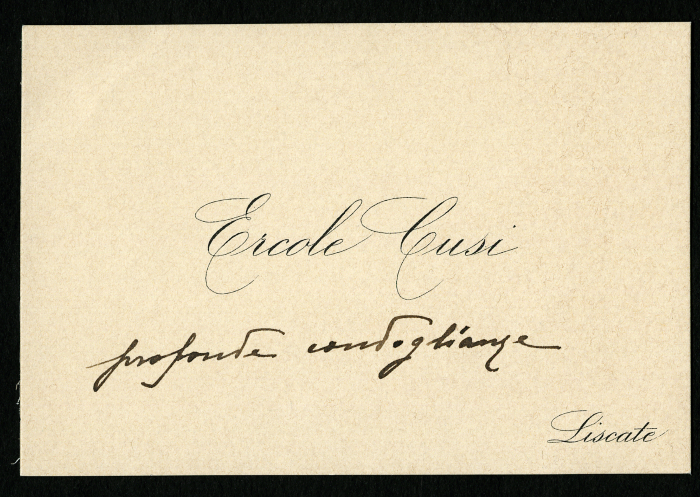 Ercole Cusi
profonde condoglianze
Liscate